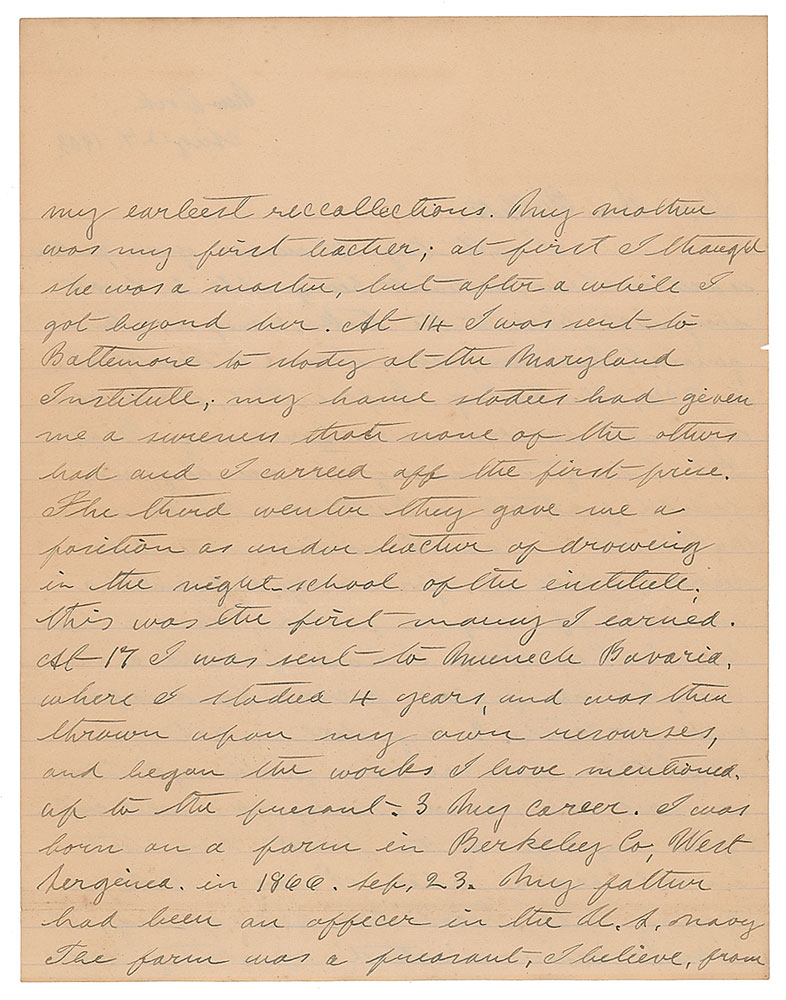 my earleest reccollections. My mother
was my first teacher; at first I thought
she was a master, but after a while I
got beyond her. At 14 I was sent to
Baltemore to study at the Maryland
Institute; my home studees had given
me a sureness that none of the others
had and I carreed off the first prise.
The third wenter they gave me a
position as under teacher of droweing
in the night-school of the institute;
this was the first money I earned.
At 17 I was sent to Muenech Bavaria,
where I studied 4 years, and was then
thrown upon my own resourses,
and began the works I have mentioned.
up to the presant. 3 My career. I was
born on a farm in Berkeley Co, West
Vergenea. in 1866. Sep, 23. My father
had been an offecer in the U. S. Navy
The farm was a preasant, I believe, from